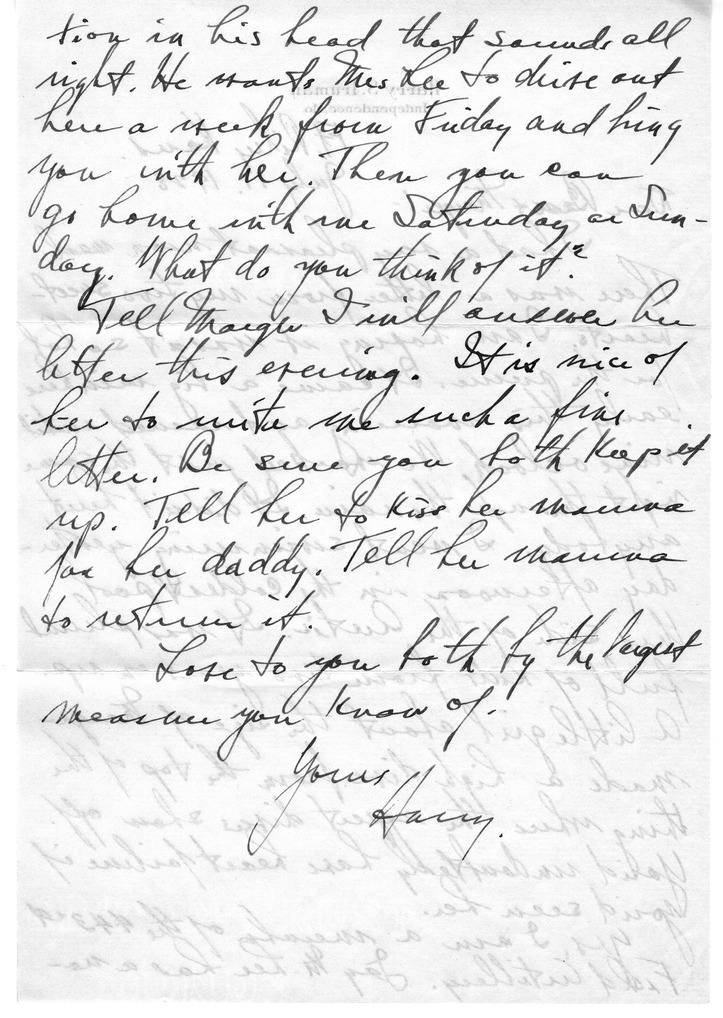 tion in his head that sounds all
right. He wants Mrs Lee to drive out
here a week from Friday and bring
you with her. Then you can
go home with me Saturday or Sun-
day. What do you think of it?
Tell Margie I will answer her
letter this evening. It is nice of
her to write me such a fine
letter. Be sure you both keep it
up. Tell her to kiss her mamma
for her daddy. Tell her mamma
to return it.
Love to you both by the largest
measure you know of.
Yours
Harry.